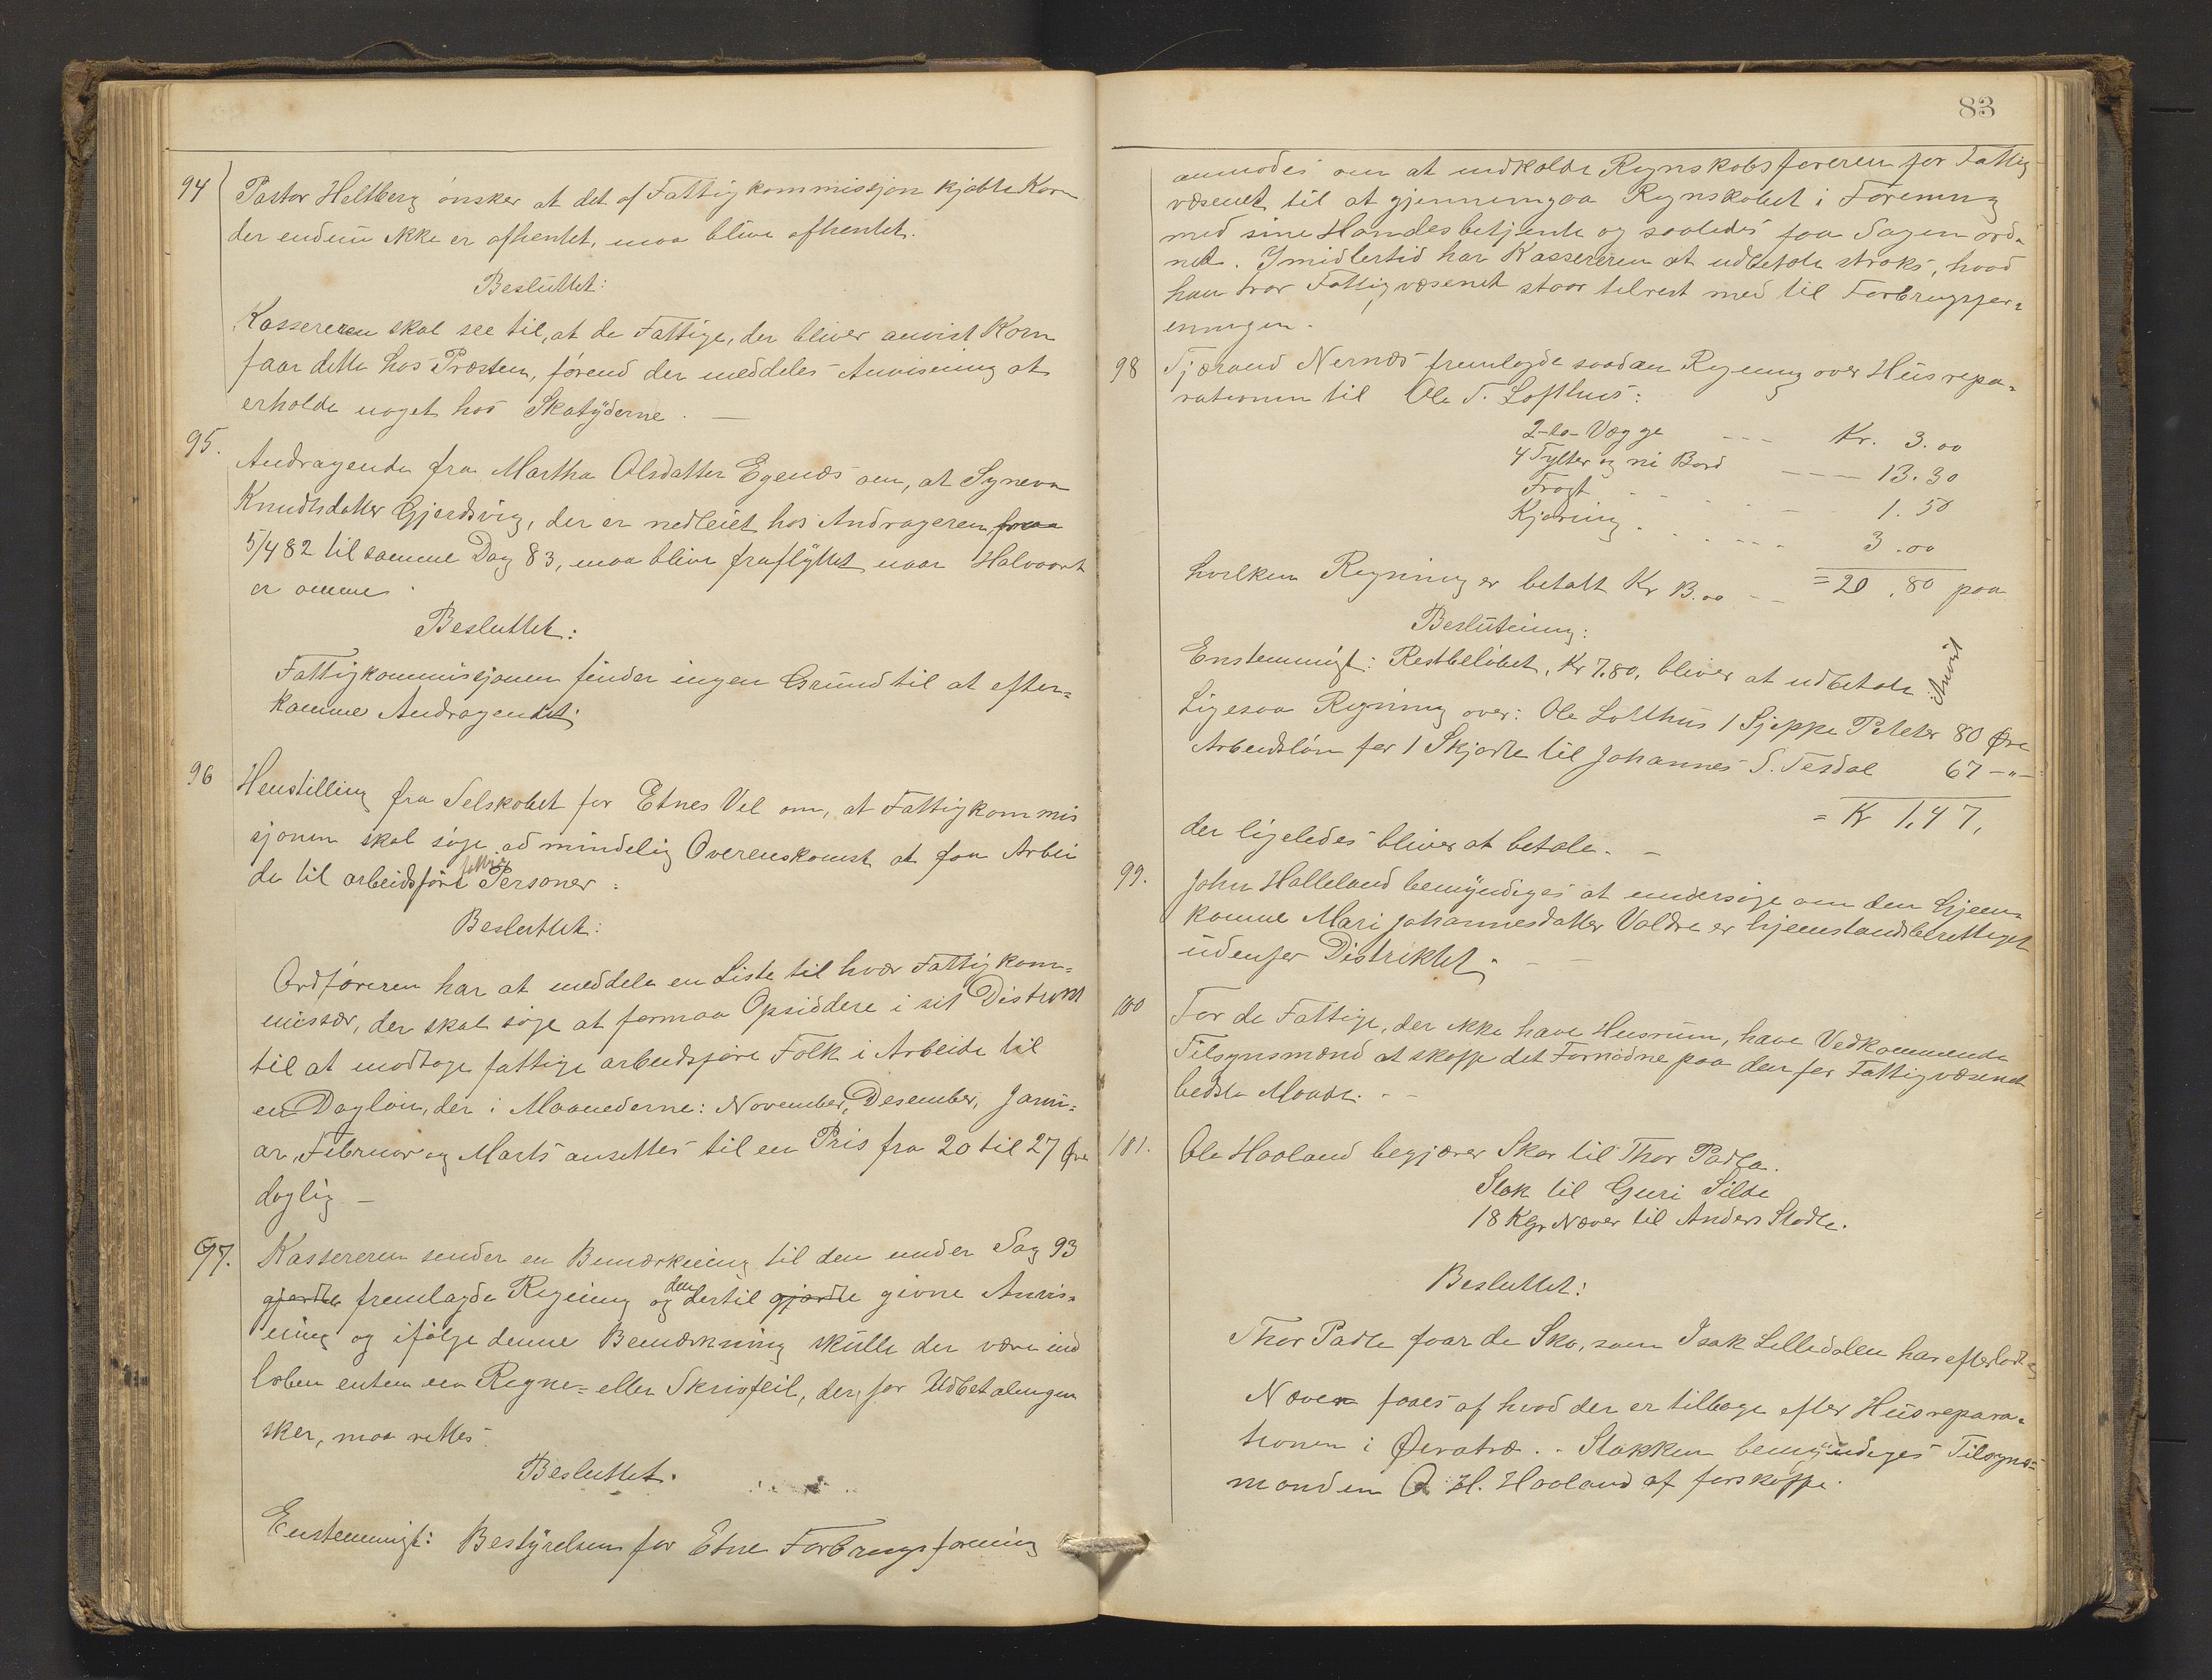 94 Pastor Heltberg ønsker at det af Fattigkommissjon kjøbte Korn
der endnu ikke er afhentet, maa blive afhentet.
Besluttet:
Kassereren skal see til, at de Fattige, der bliver anvist Korn
faar dette hos Præsten, førend der meddeles Anvisning at
erholde noget hos Skatyderne. —
95. Andragende fra Martha Olsdatter Egenæs om, at Syneva
Knudtsdatter Gjerdsvig, der er nedleiet hos Andrageren fraa
5/4 82 til samme Dag 83, maa blive fraflyttet naar Halvaaret
er omme.
Besluttet:
Fattigkommissjonen finder ingen Grund til at efter=
komme Andragendet.
96 Henstilling fra Selskabet for Etnes Vel om, at Fattigkommis
sjonen skal søge ad mindelig Overenskomst at faa Arbei
de til arbeidsføre fattige Personer.
Besluttet:
Ordføreren har at meddele en Liste til hver Fattigkom=
missær, der skal søge at formaa Opsiddere i sit Distrikt
til at modtage fattige arbeidsføre Folk i Arbeide til
en Dagløn, der i Maanederne: November, Desember, Janu=
ar, Februar og Marts ansettes til en Pris fra 20 til 27 Øre
daglig —
97. Kassereren sender en Bemærkning til den under Sag 93
gjorde fremlagde Regning og den dertil gjorde givne Anvis=
ning og ifølge denne Bemærkning skulle der være ind
løben enten en Regne= eller Skrivfeil, der, før Udbetalingen
sker, maa rettes.
Besluttet.
Enstemmigt: Bestyrelsen for Etne Forbrugsforening
83
anmodes om at indkalde Regnskabsføreren for Fattig
væsenet til at gjennemgaa Regnskabet i Forening
med sine Handelsbetjente og saaledes faa Sagen ord=
net. Imidlertid har Kassereren at udbetale straks, hvad
han tror Fattigvæsenet staar tilrest med til Forbrugsfor=
eningen.
98 Tjærand Nernæs fremlagde saadan Regning over Husrepa=
rationen til Ole T. Lofthus:
2-to-Vægge - - - Kr. 3.00
4 Tylter og ni Bord - - - 13.30
Fragt - - - - 1.50
Kjøring - - - - 3.00
hvilken Regning er betalt Kr 13.00 - - = 20.80 paa
Beslutning:
Enstemmigt: Restbeløbet, Kr 7.80, bliver at udbetale Anvist
Ligesaa Regning over: Ole Lofthus 1 Skjeppe Poteter 80 Øre
Arbeidsløn for 1 Skjorte til Johannes S. Tesdal 67 -"-
= Kr 1,47,
der ligeledes bliver at betale. —
99. John Halleland bemyndiges at undersøge om den hjem=
komne Mari Johannesdatter Valdre er hjemstandsberettiget
udenfor Distriktet. — —
100 For de Fattige, der ikke have Husrum, have Vedkommende
Tilsynsmænd at skaffe det Fornødne paa den for Fattigvæsenet
bedste Maade. - -
101. Ole Haaland begjærer Skor til Thor Padla.
Stak til Guri Silde
18 Kgr Næver til Anders Stødle.
Besluttet:
Thor Padle faar de Sko, som Isak Lilledalen har efterladt=
Næver faaes af hvad der er tilbage efter Husrepara=
tionen i Øvratræ. - Stakken bemyndiges Tilsyns=
manden O. H. Haaland at forskaffe.